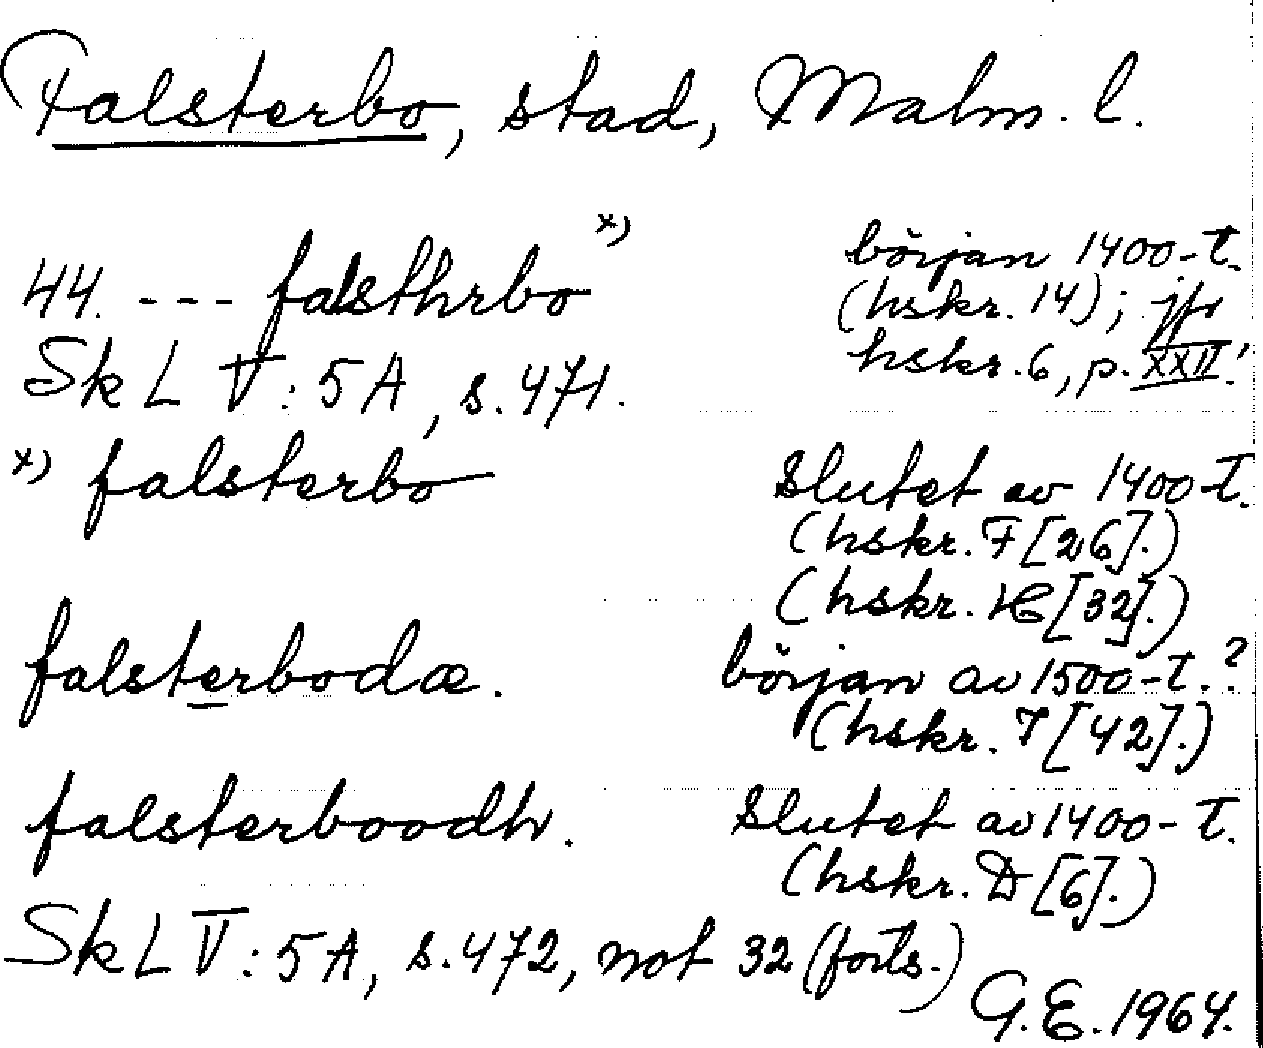 Falsterbo, stad, Malm. l.
44. --- falsthrbo x) början 1400-t.
(hskr. 14); jfr
Sk L V: 5A, s. 471. hskr. 6, p. XXII!
x) falsterbo slutet av 1400-t.
(hskr. F [26].)
(hskr. H [32].)
falsterbodæ. början av 1500-t.?
(hskr. I [42].)
falsterboodh. slutet av 1400-t.
(hskr. D [6].)
Sk L V: 5A, s. 472, not 32 (forts.)
G.E. 1964.